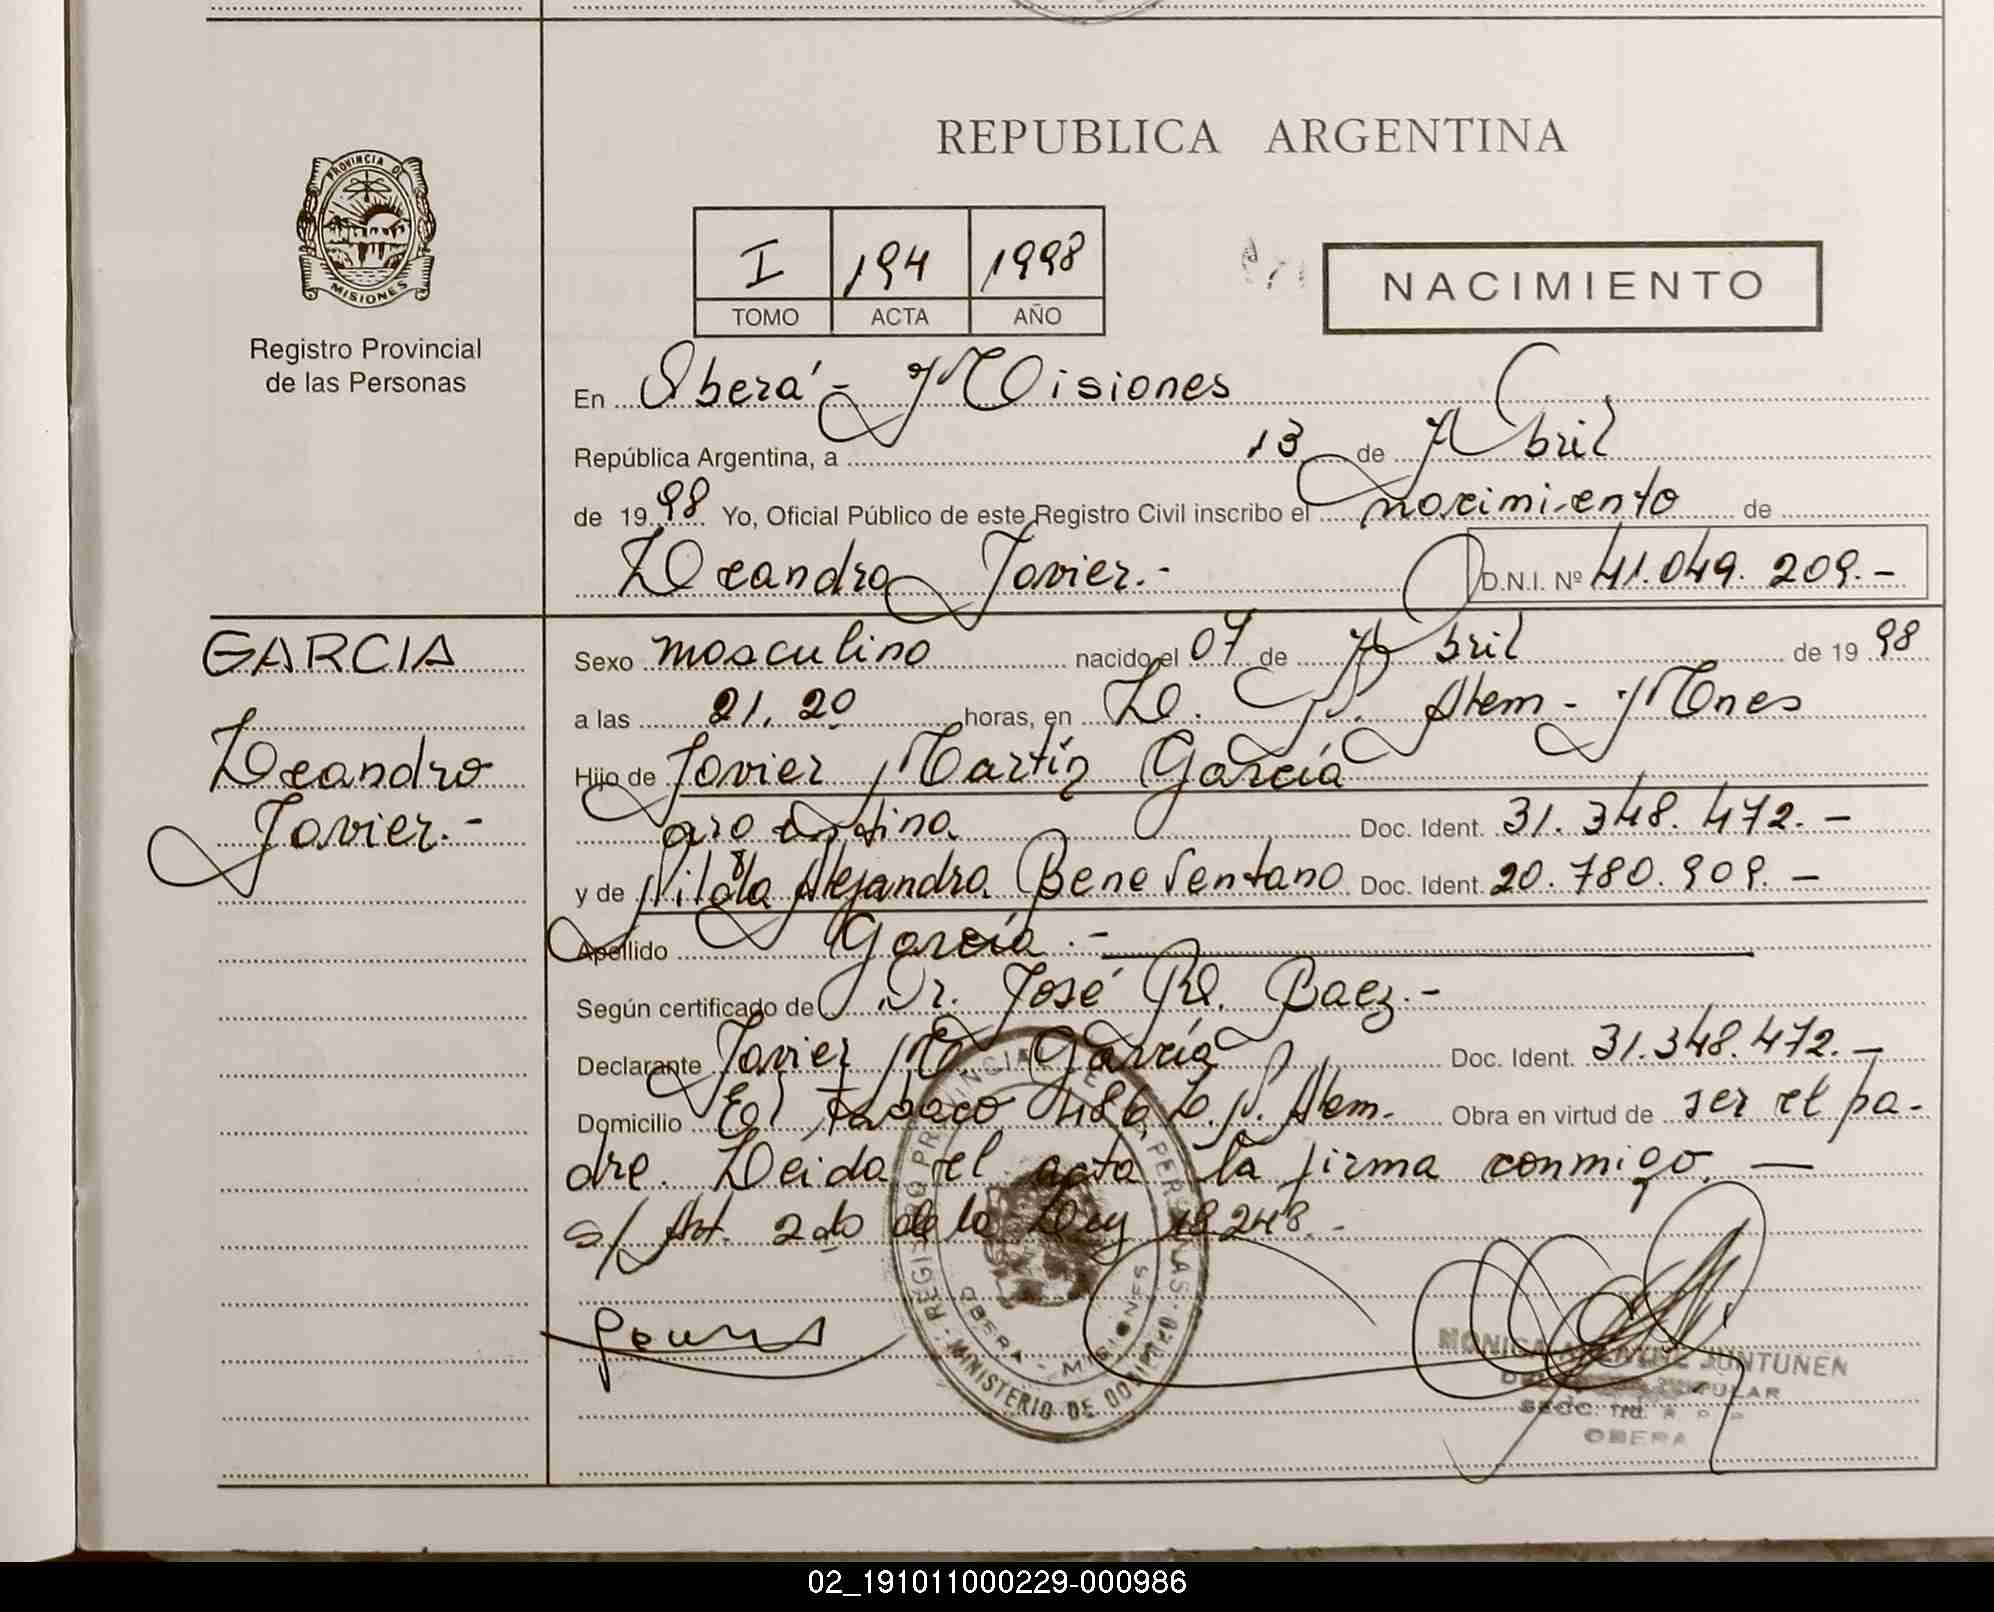 REPUBLICA ARGENTINA
PROVINCIA DE
MISIONES
Registro Provincial
de las Personas
I 194 1998
TOMO ACTA AÑO
NACIMIENTO
En Oberá - Misiones
República Argentina, a 13 de Abril
de 1998 Yo, Oficial Público de este Registro Civil inscribo el nacimiento de
Leandro Javier.- D.N.I. Nº 41.049.209.-
GARCIA
Leandro
Javier.-
Sexo masculino nacido el 07 de Abril de 1998
a las 21.20 horas, en L. N. Alem - Mnes
Hijo de Javier Martín García
argentino Doc. Ident. 31.348.472.-
y de Alejandra Beneventano Doc. Ident. 20.780.909.-
Apellido García.-
Según certificado de Dr. José R. Baez.-
Declarante Javier M. García Doc. Ident. 31.348.472.-
Domicilio El Tabaco 486 L. N. Alem. Obra en virtud de ser el pa-
dre. Leida el acta la firma conmigo. —
s/ Art. 2do de la Ley 18.248.-
REGISTRO PROVINCIAL DE LAS PERSONAS
OBERA - MISIONES
MINISTERIO DE GOBIERNO
MONICA JUNTUNEN
OBERA
02_191011000229-000986